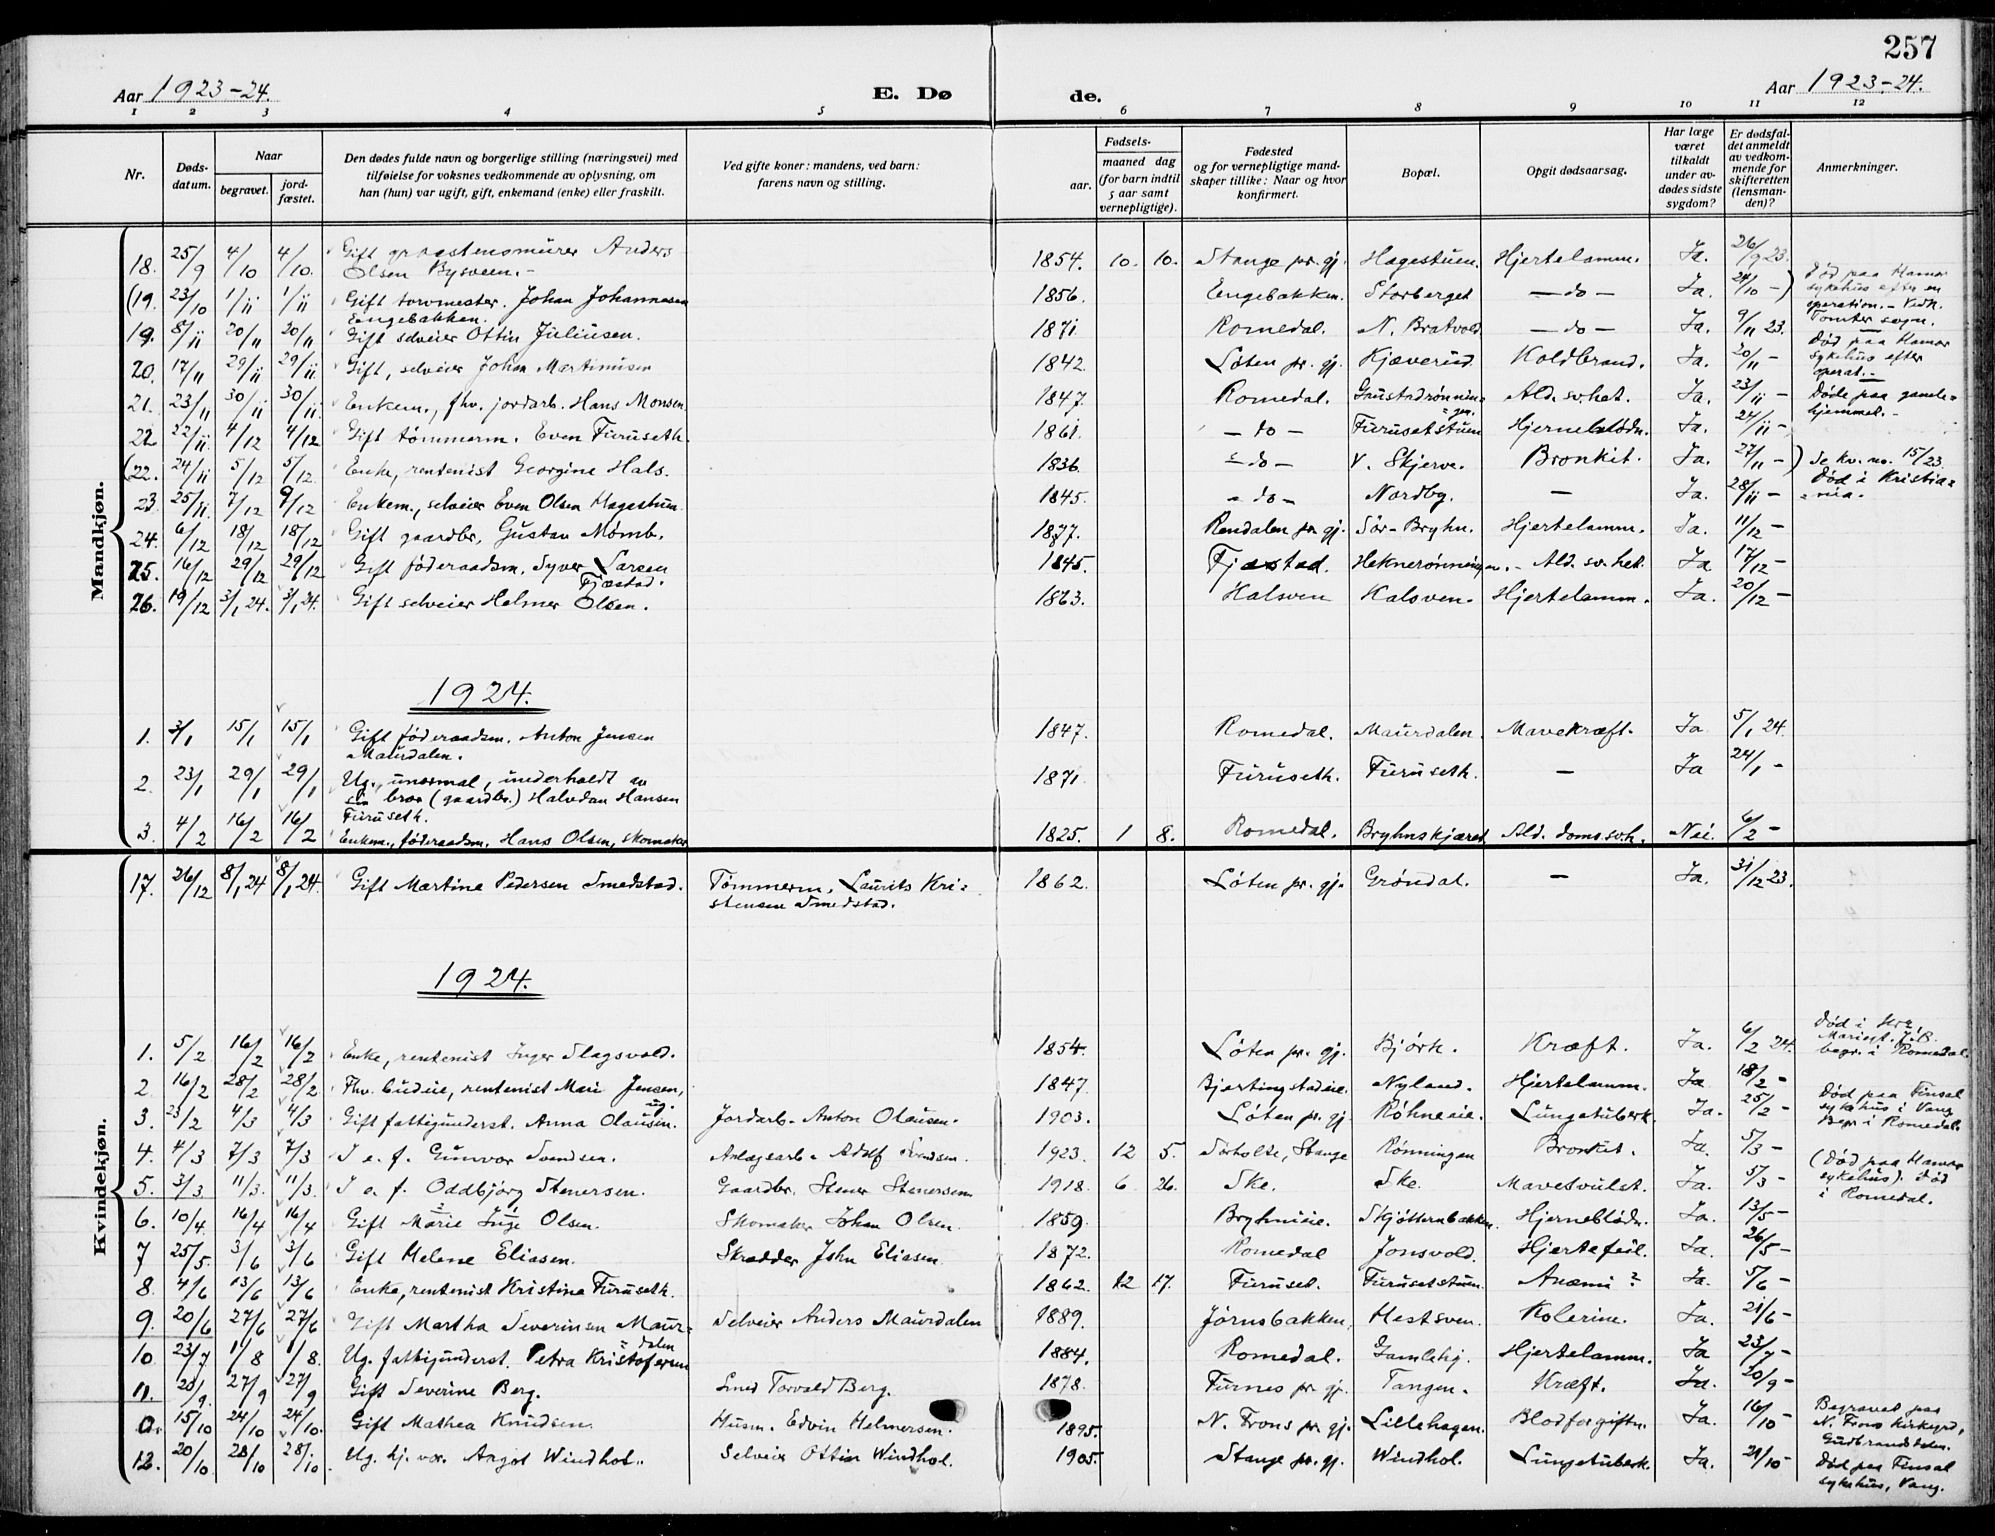 257
Aar 1923-24. E. Dø de. Aar 1923-24.
1 2 3 4 5 6 7 8 9 10 11 12
Nr. Døds-datum. Naar begravet. jord-fæstet. Den dødes fulde navn og borgerlige stilling (næringsvei) med tilføielse for voksnes vedkommende av oplysning, om han (hun) var ugift, gift, enkemand (enke) eller fraskilt. Ved gifte koner: mandens, ved barn: farens navn og stilling. Fødsels- aar. maaned dag (for barn indtil 5 aar samt vernepligtige). Fødested og for vernepligtige mand-skaper tillike: Naar og hvor konfirmert. Bopæl. Opgit dødsaarsag. Har læge været tilkaldt under av-dødes sidste sygdom? Er dødsfal-det anmeldt av vedkom-mende for skifteretten (lensman-den)? Anmerkninger.
Mandkjøn.
18. 25/9 4/10 4/10. Gift graastensmurer Anders Olsen Bysveen.- 1854. 10. 10. Stange pr. gj. Hagestuen. Hjertelamm. Ja. 26/9 23.
(19. 23/10 1/11 1/11 Gift torvmester. Johan Johannesen Engebakken. 1856. Engebakken. Storberget -do- Ja. 24/10 -) Død paa Hamar sykehus efter en operation.- Vedk. Tomter sogn.
19. 8/11 20/11 20/11 Gift selveier Ottin Juliusen. 1871. Romedal. N. Bratvold -do- Ja. 9/11 23.
20. 17/11 29/11 29/11 Gift, selveier Johan Martinusen 1842. Løten pr. gj. Kjæverud. Koldbrand. Ja. 20/11 - Død paa Hamar sykehus efter operat.-
21. 23/11 30/11 30/11. Enkem., fhv. jordarb. Hans Monsen. 1847. Romedal. Gaustadrønnin=gen. Ald. sv.het. Ja. 23/11 - Døde paa gamle=hjemmet.-
22 22/11 4/12 4/12 Gift tømmerm. Even Furuseth. 1861. -do- Furusetstuen Hjerneblødn. Ja. 24/11 -
(22. 24/11 5/12 5/12. Enke, rentenist Georgine Hals. 1836. -do- V. Skjerve. Bronkit. Ja. 27/11 -) Se kv. no. 15/23.
23 25/11. 7/12 9/12 Enkem., selveier Even Olsen Hagestuen. 1845. -do- Nordby. - Ja. 28/11 - Død i Kristia=nia.
24. 6/12 18/12 18/12 Gift gaardbr. Gustav Mømb. 1877. Rendalen pr. gj. Sör-Bryhn. Hjertelamm. Ja. 11/12 -
25. 16/12 29/12 29/12 Gift føderaadsm. Syver Larsen Fjæstad. 1845. Fjæstad. Heknerønningen. - Ald. sv.het. Ja 17/12 -
26. 19/12 3/1 24. 3/1 24. Gift selveier Helmer Olsen. 1863. Kalsven Kalsven. Hjertelamm. Ja. 20/12 -
1924.
1. 3/1 15/1 15/1 Gift føderaadsm. Anton Jensen Maurdalen. 1847. Romedal. Maurdalen. Mavekræft. Ja 5/1 24.
2. 23/1 29/1 29/1 Ug., unormal, underholdt av sin bror (gaardbr.) Halvdan Hansen Furuseth. 1871. Furuseth. Furuseth. - Ja 24/1 -
3. 4/2 16/2 16/2 Enkem., føderaadsm. Hans Olsen, skomaker 1825. 1 8. Romedal. Bryhnskjæret Ald. doms.svh. Nei. 6/2 -
Kvindekjøn.
17. 26/12 8/1 24 8/1 24. Gift Martine Pedersen Smedstad. Tømmerm. Laurits Kri=stensen Smedstad. 1862. Løten pr. gj. Grøndal. - Ja. 31/12 23.
1924.
1. 5/2 16/2 16/2 Enke, rentenist Inger Slagsvold. 1854. Løten pr. gj. Bjørk. Kræft. Ja. 6/2 24. Død i begr. i Romedal.
2 16/2 28/2 28/2 Fhv. budeie, rentenist Mari Jensen, ug. 1847. Bjertingstadeie. Nyland. Hjertelamm. Ja 18/2 -
3. 23/2 4/3 4/3 Gift fattigunderst. Anna Olausen. Jordarb. Anton Olausen. 1903. Løten pr. gj. Røhneeie. Lungetuberk. Ja. 25/2 - Død paa Finsal sykehus i Vang Begr. i Romedal.
4. 4/3 7/3 7/3 I e. f. Gunvor Svendsen. Anlægsarb. Adolf Svendsen. 1923. 12 5. Sørholte, Stange Rønningen Bronkit. Ja. 5/3 -
5. 3/3 11/3. 11/3. I e. f. Oddbjørg Stenersen. Gaardbr. Stener Stenersen 1918. 6 26. Ske. Ske. Mavesvulst. Ja. 5/3 - (Død paa Hamar sykehus). Død i Romedal.
6. 10/4 16/4 16/4 Gift Marie Inge Olsen. Skomaker Johan Olsen. 1859. Bryhnieie. Skjøtternbakken. Hjerneblødn. Ja. 13/5 -
7 25/5. 3/6 3/6 Gift Helene Eliasen. Skrædder John Eliasen. 1872. Romedal Jonsvold. Hjertefeil. Ja. 26/5 -
8. 4/6 13/6 13/6 Enke, rentenist Kristina Furuseth. 1862. 12 17. Furuset. Furusetstuen. Anæmi? Ja. 5/6 -
9. 20/6 27/6 27/6 Gift Martha Severinsen Maur=dalen Selveier Anders Maurdalen 1889. Jørnsbakken, Hestsven. Kolerine. Ja. 21/6 -
10. 23/7 1/8 1/8. Ug. fattigunderst. Petra Kristofersen 1884. Romedal. Gamlehj. Hjertelamm. Ja 23/7 -
11. 20/9. 27/9 27/9 Gift Severine Berg. Smed Torvald Berg. 1878. Furnes pr. gj. Tangen. Kræft. Ja. 20/9 -
0. 15/10 24/10 24/10. Gift Mathea Knudsen. Husm. Edvin Helmersen. 1895. N. Frons pr. gj. Lillehagen. Blodforgiftn. Ja. 16/10 - Begravet paa N. Frons kirkegrd, Gudbrandsdalen.
12. 20/10 28/10 28/10 Ug. hj. vær. Aagot Windhol. Selveier Ottin Windhol. 1905. Stange pr. gj. Windhol. Lungetuberk. Ja. 21/10 - Død paa Finsal sykehus, Vang.